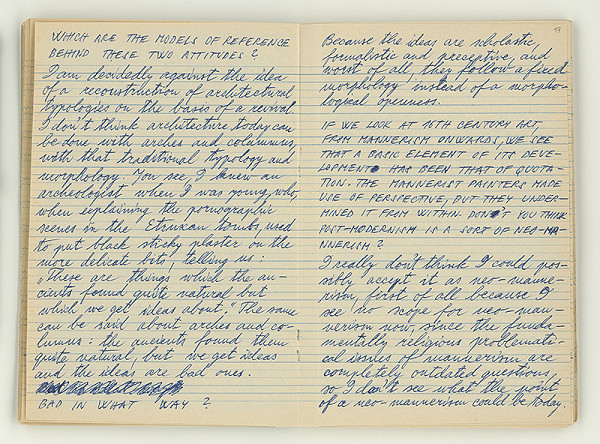 WHICH ARE THE MODELS OF REFERENCE
BEHIND THESE TWO ATTITUDES?
I am decidedly against the idea
of a reconstruction of architectural
typologies on the basis of a revival.
I don't think architecture today can
be done with arches and columns,
with that traditional typology and
morphology. You see, I knew an
archeologist when I was young, who,
when explaining the pornographic
scenes in the Etruscan tombs, used
to put black sticky plaster on the
more delicate bits, telling us:
"These are things which the an-
cients found quite natural but
which we get ideas about." The same
can be said about arches and co-
lumns: the ancients found them
quite natural, but we get ideas
and the ideas are bad ones.
BAD IN WHAT WAY?
Because the ideas are scholastic,
formalistic and preceptive, and
worst of all, they follow a fixed
morphology instead of a morpho-
logical openness.
IF WE LOOK AT 16TH CENTURY ART,
FROM MANNERISM ONWARDS, WE SEE
THAT A BASIC ELEMENT OF ITS DEVE-
LOPMENT HAS BEEN THAT OF QUOTA-
TION. THE MANNERIST PAINTERS MADE
USE OF PERSPECTIVE, BUT THEY UNDER-
MINED IT FROM WITHIN. DON'T YOU THINK
POST-MODERNISM IS A SORT OF NEO-MA-
NNERISM?
I really don't think I could pos-
sibly accept it as neo-manne-
rism, first of all because I
see no scope for neo-man-
nerism now, since the funda-
mentally religious problemati-
cal issues of mannerism are
completely outdated questions,
so I don't see what the point
of a neo-mannerism could be today.